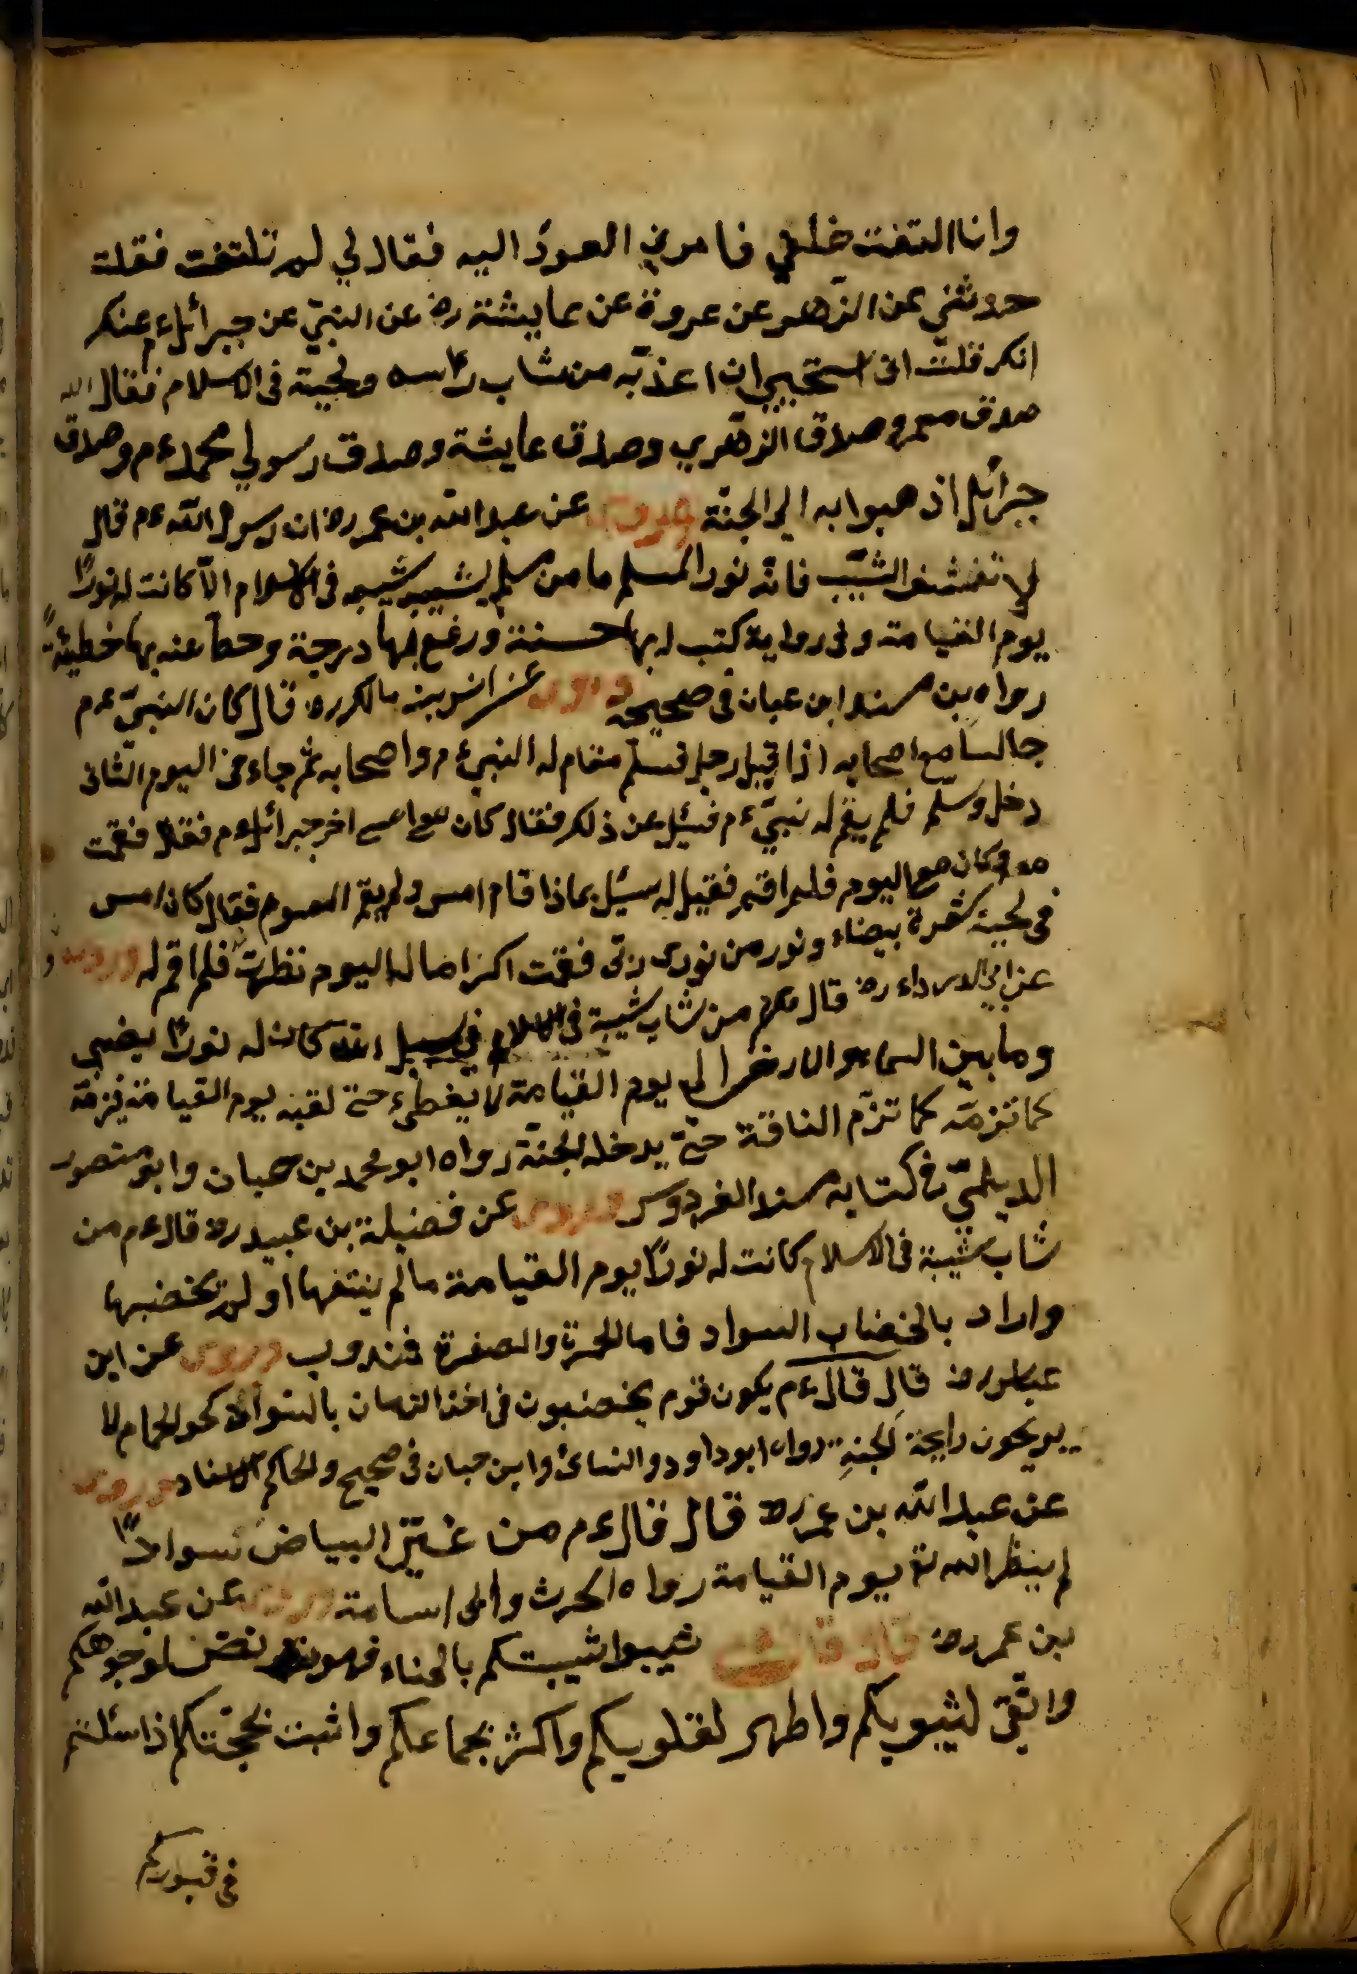 وانا التفت خلفي فامرني العود اليه فقال لي لم تلتفت فقلت
حدثني عن الزهر عن عروة عن عايشة رض عن النبي عن جبرائل عم عنك
انك قلت انى استحيي ان اعذبه من شاب رأسه ولحية فى الاسلام فقال الله
صدق معمر وصدق الزهري وصدق عايشة وصدق رسولي محمد عم وصدق
جبرائل اذهبوا به الي الجنة وروى عن عبد الله بن عمر رض ان رسول الله عم قال
لا الشيب فانه نور المسلم ما من مسلم يشيب شيب فى الاسلام الا كانت له نورًا
يوم القيامة وفى رواية كتب له بها حسنة ورفع بها درجة وحط عنه بها خطيئة
رواه بن مسند ابن عبان فى صحيحه وروى عن انس بن مالك رض قال كان النبي عم
جالسا مع اصحابه اذا قبل رجل فسلم فقام له النبي عم واصحابه ثم جاء من اليوم الثانى
دخل وسلم فلم يقم له نبي عم فسئل عن ذلك فقال كان مع امس اخر جبرائل عم فقال فقمت
معه وكان مع اليوم فلم اقم فقيل له سئيل بماذا قام امس ولم يقم اليوم فقال كان امس
فى لحية شعرة بيضاء ونور من نورى ربى فقمت اكراما له اليوم نظرت فلم اقم له وروى
عن ابي الدرداء رض قال عم من شاب شيبة فى الاسلام فى سبيل الله كان له نورًا يضيى
وما بين السماء والارض الي يوم القيامة لا يغطيء حتى لقيه يوم القيامة فيزمه
كما تزمه كما تزم الناقة حتى يدخله الجنة رواه ابو محمد بن حبان وابو منصور
الديلمي في كتابه مسند الفردوس وروى عن فضيلة بن عبيد رض قال عم من
شاب شيبة فى الاسلام كانت له نورًا يوم القيامة ما لم ينتفها او لم يخضبها
واراد بالخضاب السواد فاما الحمرة والصفرة فمندوب وروى عن ابن
عباس رض قال قال عم يكون قوم يخضبون فى اخر الزمان بالسواد كحو الحمام لا
يريحون رايحة الجنة رواه ابو داود والنسائ وابن حبان فى صحيح والحاكم الاسناد وروى
عن عبد الله بن عمر رض قال قال عم من غيّر البياض سوادًا
لم ينظر الله له يوم القيامة رواه الحرث وابى اسامة وروى عن عبد الله
بن عمر رض قال قال شيبوا شيبتكم بالحناء فهو لوجوهكم
وانقى لثيوبكم واطهر لقلوبيكم واكثر بجماعكم واثبت بحجتكم اذا سئلتم
فى قبوركم